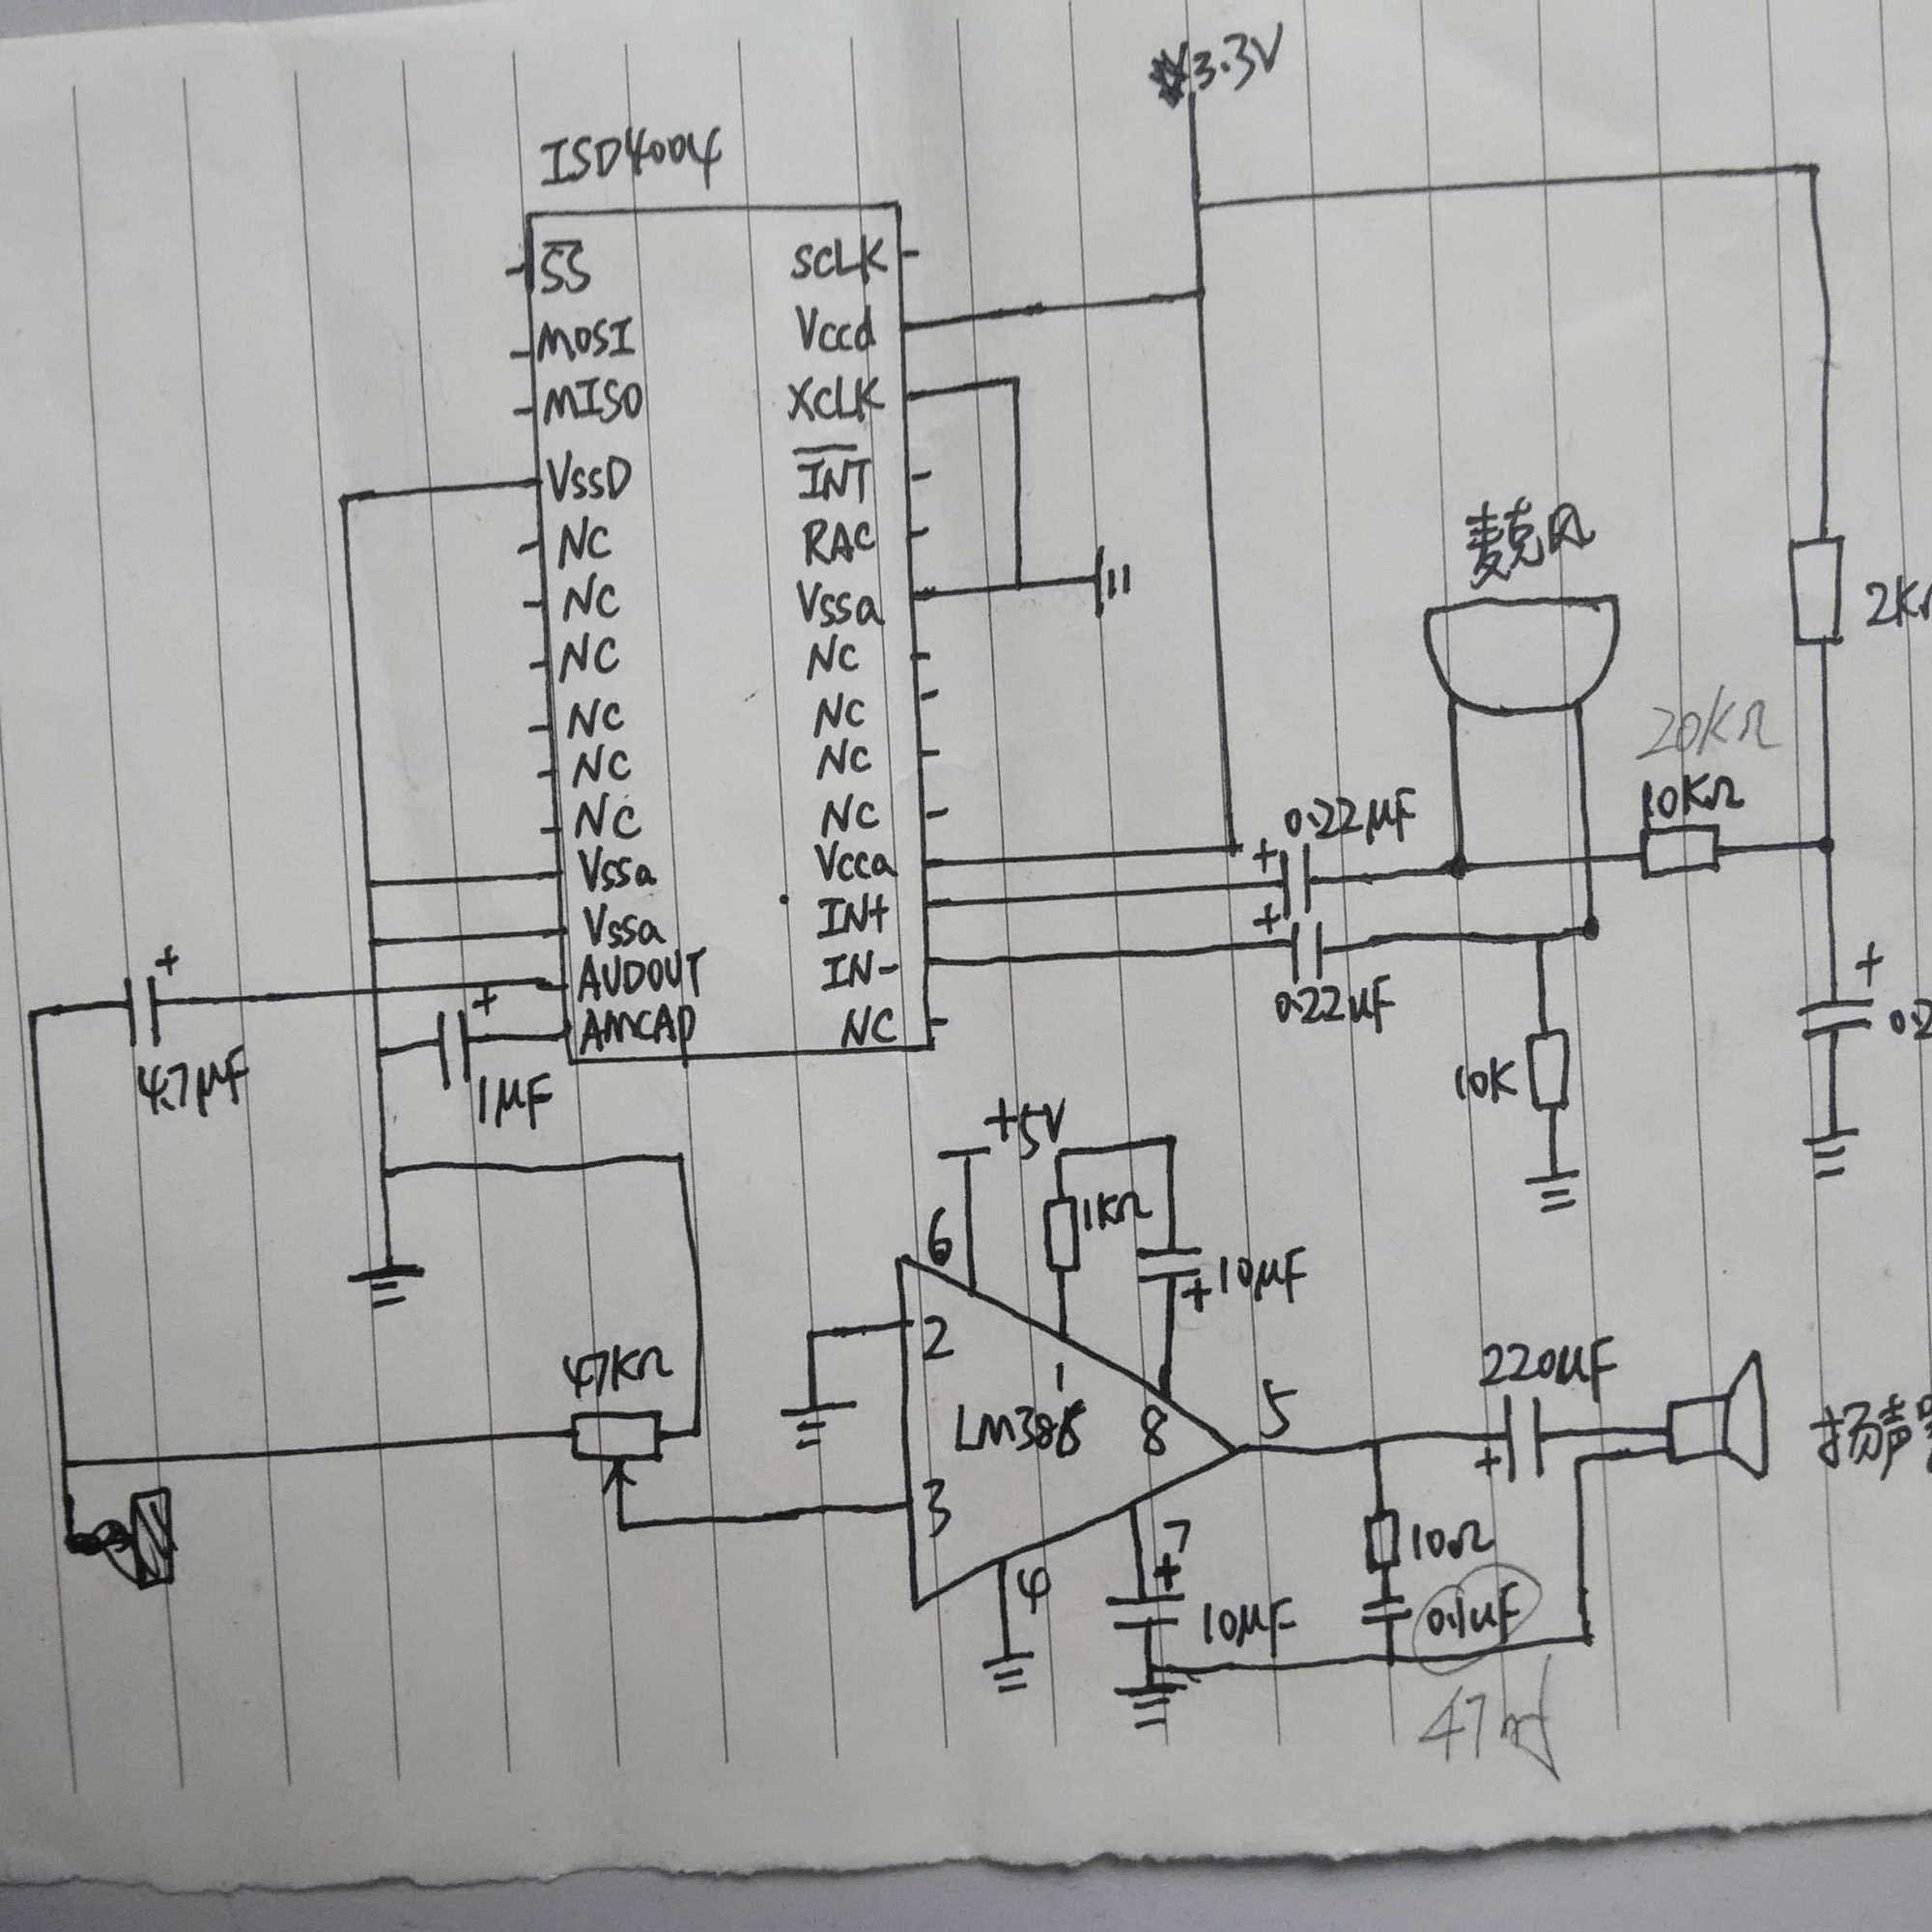 3.3V
ISD4004
SS SCLK
MOSI Vccd
MISO XCLK
VSSD INT
NC RAC
NC Vssa
NC NC
NC NC
NC NC
NC NC
Vssa Vcca
Vssa IN+
AUDOUT IN-
AMCAP NC
麦克风
20KΩ
10KΩ
0.22μF
0.22uF
+
+
+
+
+
4.7μF
1μF
10K
+5V
1KΩ
6
+10μF
2
47KΩ
1
8
5
220μF
+
3
4
7
+
10μF
10Ω
0.1uF
47nf